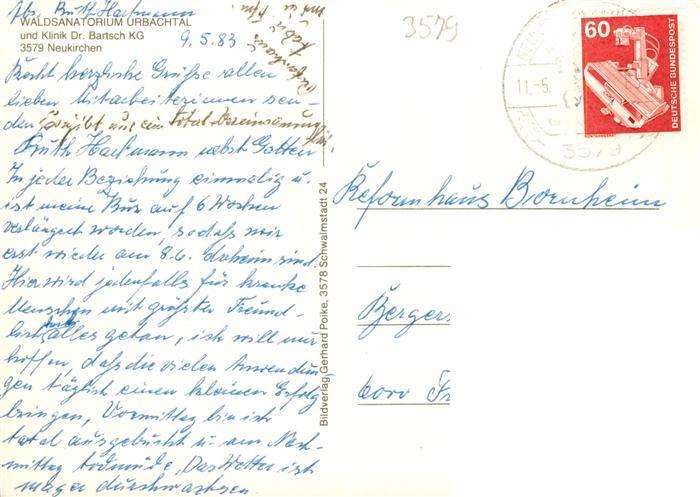 Abs. Ruth Hartmann
WALDSANATORIUM URBACHTAL
und Klinik Dr. Bartsch KG
3579 Neukirchen
9.5.83
Recht herzliche Grüße allen
lieben Mitarbeiterinnen sen-
den
Ruth Hartmann nebst Gatten
In jeder Beziehung einmalig u.
ist meine Kur auf 6 Wochen
verlängert worden, sodaß wir
erst wieder am 8.6. daheim sind.
Hier wird jedenfalls für kranke
Menschen mit größter Freund-
lichkeit alles getan, ich will nur
hoffen, daß die vielen Anwendun-
gen täglich einen kleinen Erfolg
bringen, Vormittag bin ich
total ausgebucht u. am Nach-
mittag todmüde. Das Wetter ist
mager durchwachsen.
Bildverlag Gerhard Polke, 3578 Schwalmstadt 24
3579
11.-5.
3579
60
DEUTSCHE BUNDESPOST
Reformhaus Bornheim
Berger
6000 Fr